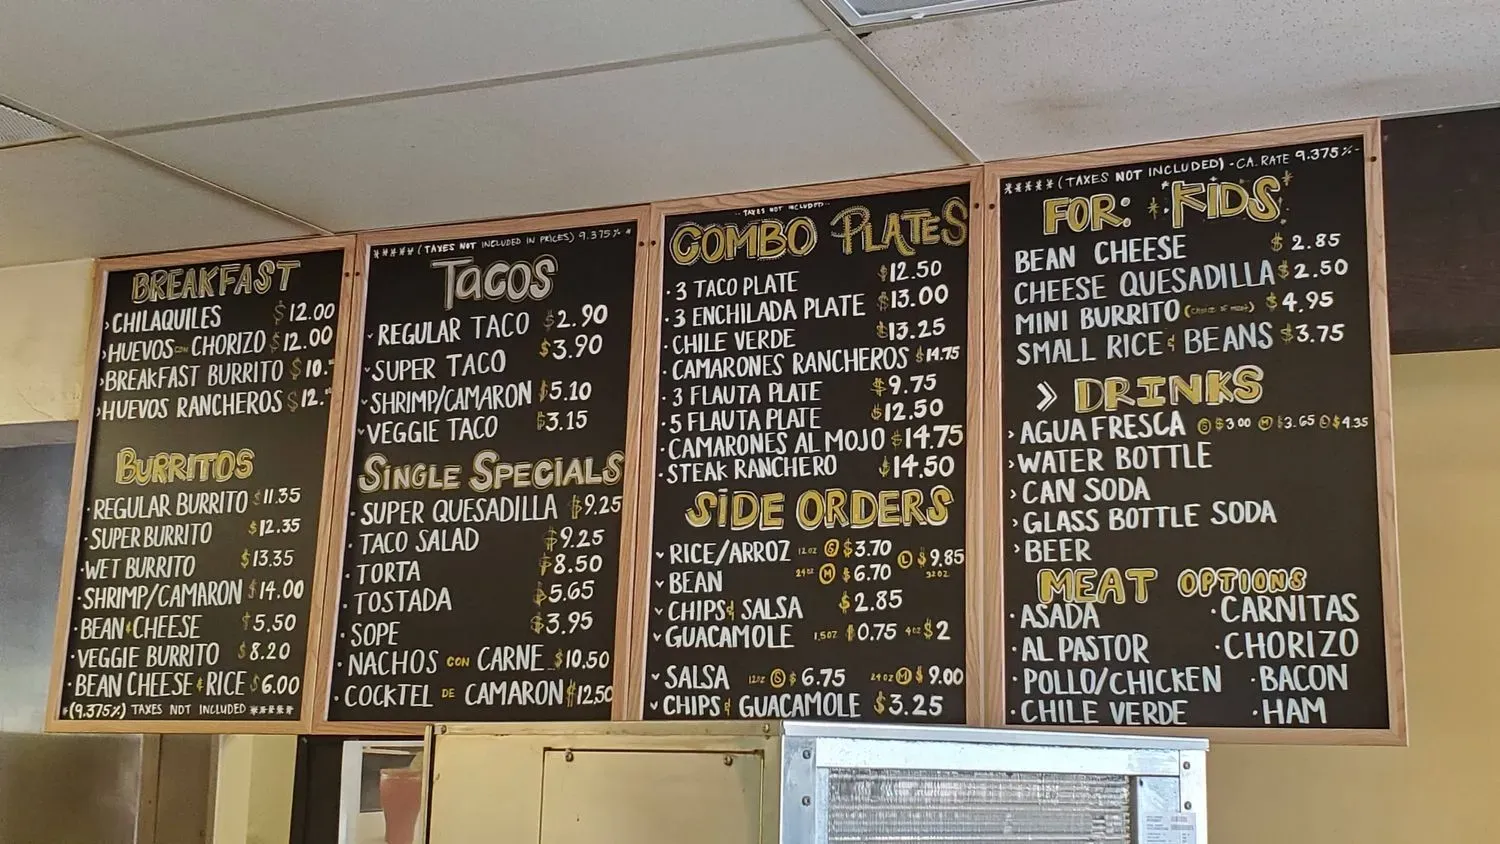 BREAKFAST
CHILAQUILES $12.00
HUEVOS CON CHORIZO $12.00
BREAKFAST BURRITO $10.
HUEVOS RANCHEROS $12.
BURRITOS
REGULAR BURRITO $11.35
SUPER BURRITO $12.35
WET BURRITO $13.35
SHRIMP/CAMARON $14.00
BEAN & CHEESE $5.50
VEGGIE BURRITO $8.20
BEAN CHEESE & RICE $6.00
*(9.375%) TAXES NOT INCLUDED *****
*****(TAXES NOT INCLUDED IN PRICES) 9.375% *
TACOS
REGULAR TACO $2.90
SUPER TACO $3.90
SHRIMP/CAMARON $5.10
VEGGIE TACO $3.15
SINGLE SPECIALS
SUPER QUESADILLA $9.25
TACO SALAD $9.25
TORTA $8.50
TOSTADA $5.65
SOPE $3.95
NACHOS CON CARNE $10.50
COCKTEL DE CAMARON $12.50
TAXES NOT INCLUDED
COMBO PLATES
3 TACO PLATE $12.50
3 ENCHILADA PLATE $13.00
CHILE VERDE $13.25
CAMARONES RANCHEROS $14.75
3 FLAUTA PLATE $9.75
5 FLAUTA PLATE $12.50
CAMARONES AL MOJO $14.75
STEAK RANCHERO $14.50
SIDE ORDERS
RICE/ARROZ 12OZ S $3.70 L $9.85
BEAN 24OZ M $6.70 32OZ
CHIPS & SALSA $2.85
GUACAMOLE 1.5OZ $0.75 4OZ $2
SALSA 12OZ S $6.75 24OZ M $9.00
CHIPS & GUACAMOLE $3.25
*****(TAXES NOT INCLUDED) - CA. RATE 9.375%-
FOR: KIDS
BEAN CHEESE $2.85
CHEESE QUESADILLA $2.50
MINI BURRITO (CHOICE OF MEAT) $4.95
SMALL RICE & BEANS $3.75
DRINKS
AGUA FRESCA S $3.00 M $3.65 L $4.35
WATER BOTTLE
CAN SODA
GLASS BOTTLE SODA
BEER
MEAT OPTIONS
ASADA CARNITAS
AL PASTOR CHORIZO
POLLO/CHICKEN BACON
CHILE VERDE HAM